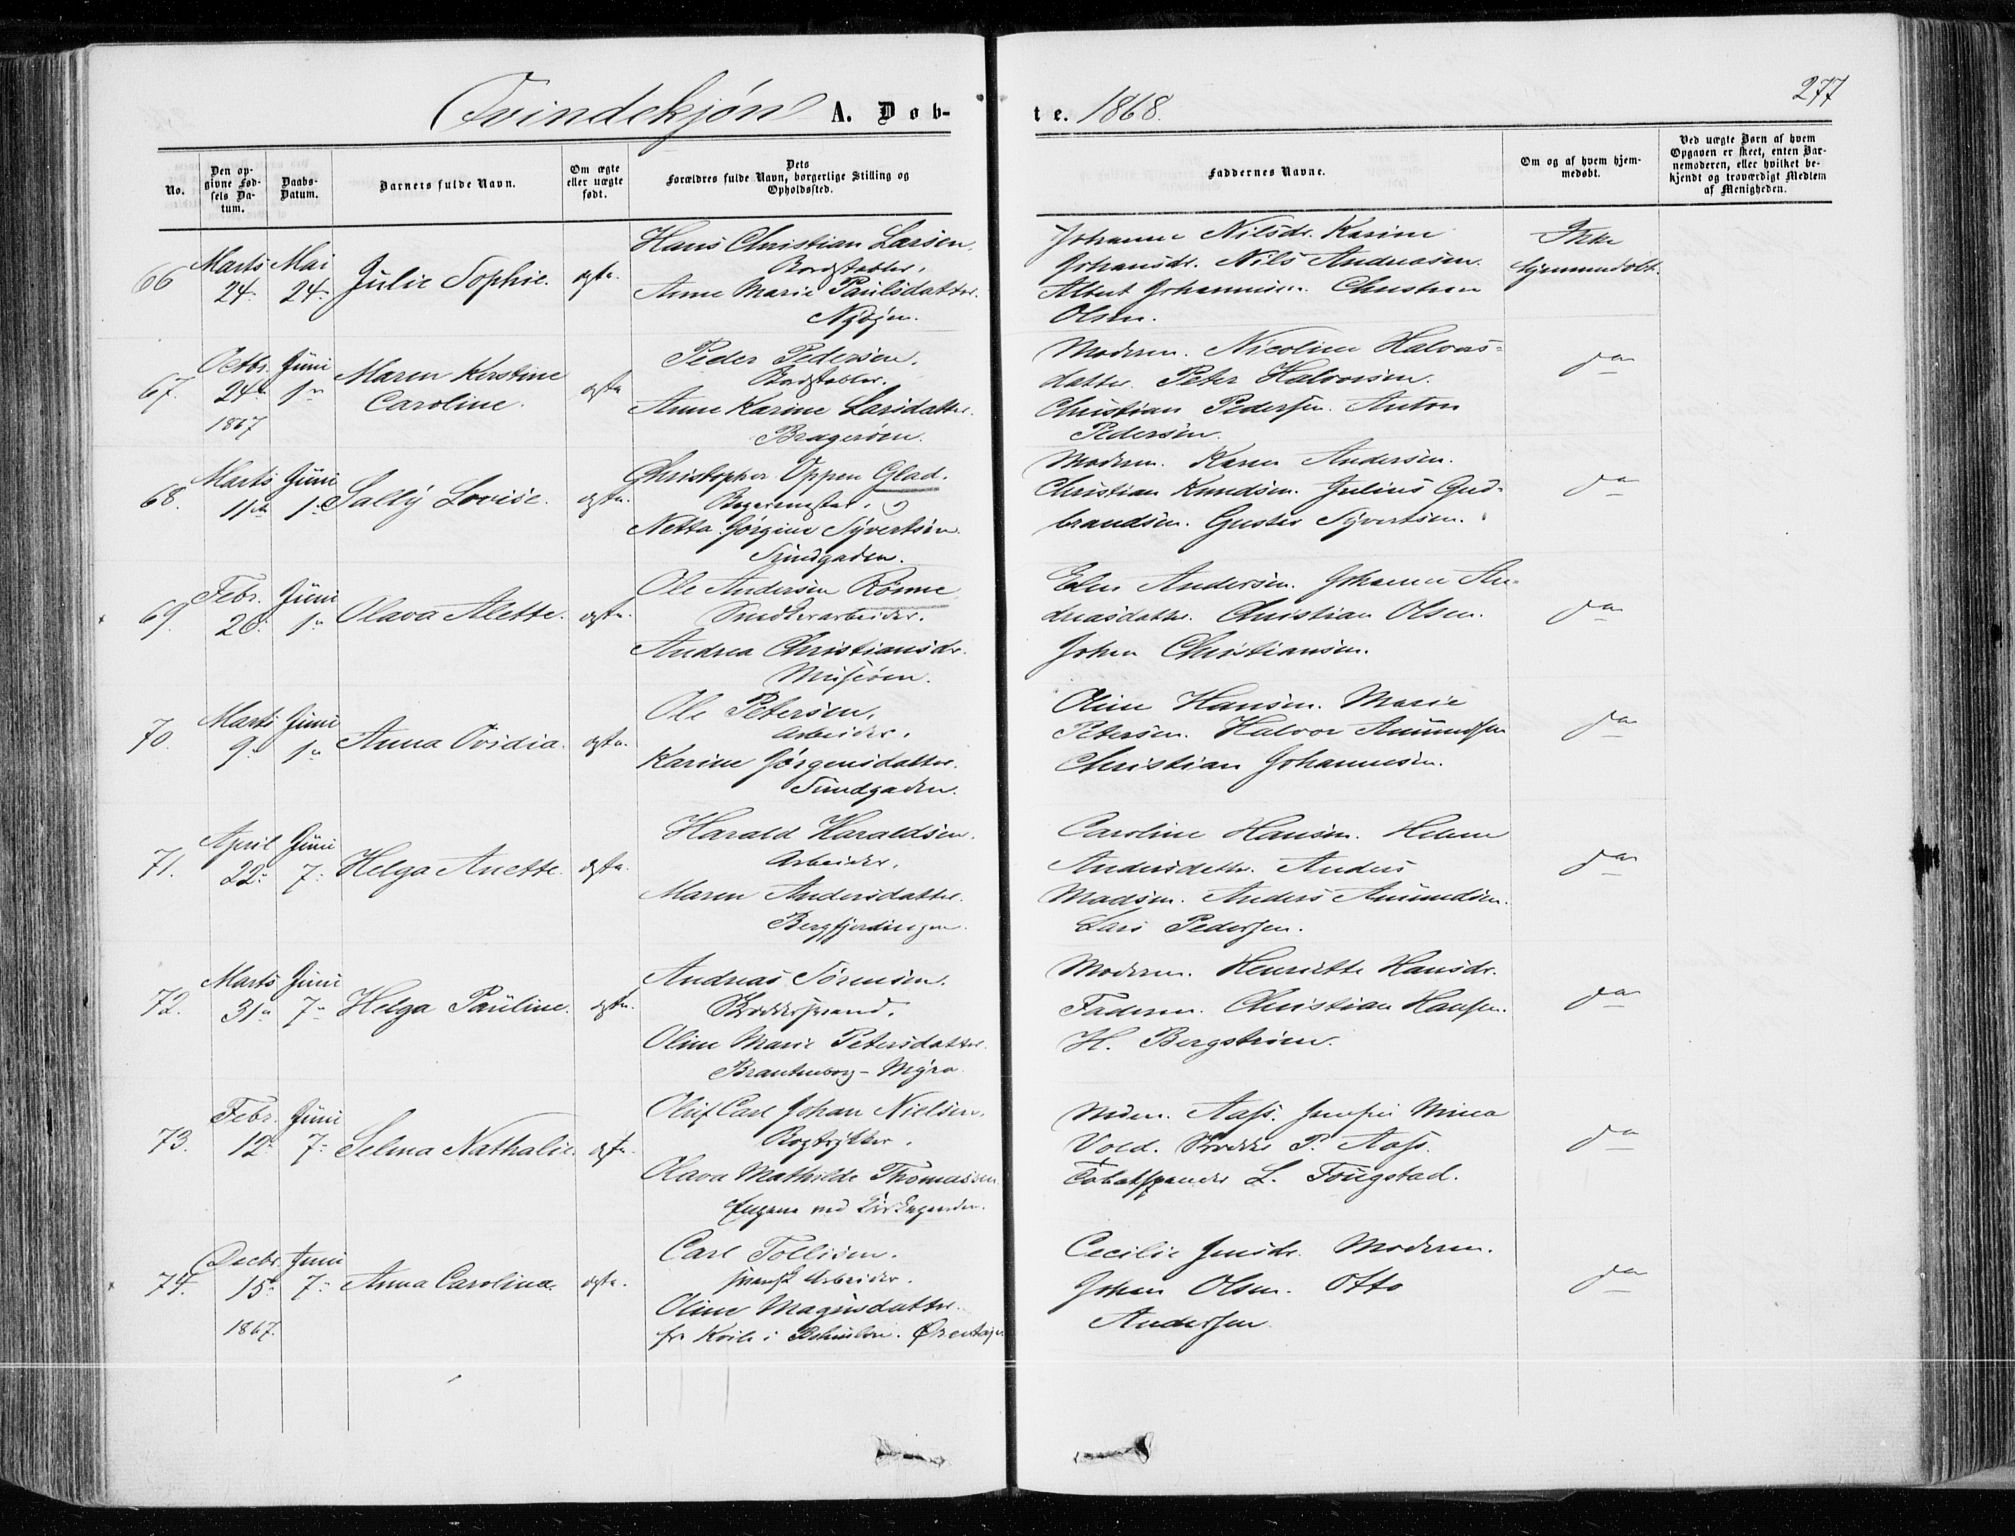 277
Qvindekjøn A. Døb-te. 1868.
No.
Den opgivne Fødsels Datum.
Daabs-Datum.
Barnets fulde Navn.
Om ægte eller uægte født.
Dets Forældres fulde Navn, borgerlige Stilling og Opholdssted.
Faddernes Navne.
Om og af hvem hjemmedøbt.
Ved uægte Børn af hvem Opgaven er skeet, enten Barnemoderen, eller hvilket bekjendt og troværdigt Medlem af Menigheden.
66 Marts 24. Mai 24. Julie Sophie. ægte.
Hans Christian Larsen.
Bordstabler.
Anne Marie Paulsdatter.
Nybyen.
Johanne Nilsdr. Karine
Johansdr. Nils Andreasen.
Albert Johannesen. Christian
Olsen.
Ikke
hjemmedøbt.
67. Octbr. 24 1867 Juni 1 Maren Kirstine
Caroline. ægte
Peder Pedersen.
Bordstabler.
Anne Karine Larsdatter.
Bragerøen.
Moderen. Nicoline Halvors-
datter. Peter Halvorsen.
Christian Pedersen. Anton
Pedersen.
do
68. Marts 11 Juni 1 Sally Lovise. ægte.
Christopher Oppen Glad.
Netta Jørgine Syvertsen.
Tundgaden.
Moderen. Karen Andersen.
Christian Knudsen. Julius Gud-
brandsen. Gustav Syvertsen.
do
69. Febr. 26. Juni 1 Olava Alette. ægte.
Ole Andersen Rønne
Andrea Christiansdr.
Andersen. Johanne An-
dreasdatter. Christian Olsen.
Johan Christiansen.
do
70. Marts 9 Juni 1 Anna Ovidia. ægte.
Ole Petersen.
Arbeider.
Karine Jørgensdatter.
Tundgaden.
Oline Hansen. Marie
Petersen. Halvor Amundsen
Christian Johannesen.
do
71. April 22 Juni 7. Helga Anette. ægte.
Harald Haraldsen.
Arbeider.
Maren Andersdatter.
Bergfjerdingen.
Caroline Hansen. Helene
Andersdatter. Anders
Madsen. Anders Amundsen.
Lars Pedersen.
do
72. Marts 31 Juni 7 Helga Pauline. ægte.
Andreas Sørensen.
Oline Marie Petersdatter.
Moderen. Henriette Hansdr.
Faderen. Christian Hansen.
H. Bergstrøm.
do
73. Febr. 12 Juni 7 Selma Nathalie. ægte.
Oluf Carl Johan Nielsen.
Bogtrykker.
Olava Mathilde Thomassen
Mdm. Aass. Mina
Vold. P. Aass.
L. Fougstad.
do
74. Decbr. 15 1867. Juni 7 Anna Carolina. ægte.
Carl Tollisen.
svensk Arbeider.
Oline Magnusdatter.
Cecilie Jensdr. Moderen.
Johan Olsen. Otto
Andersen.
do